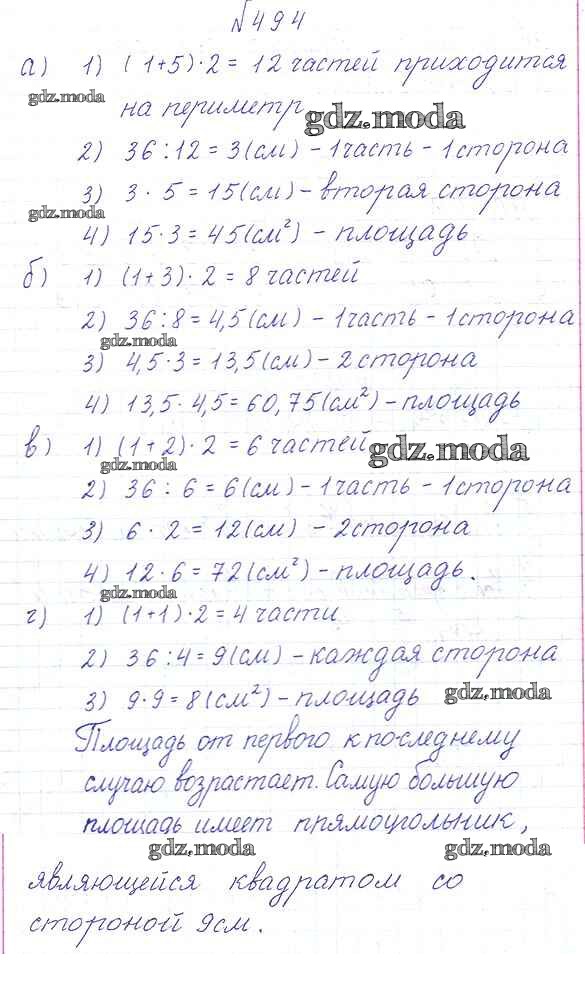 №494
а) 1) (1+5)·2 = 12 частей приходится
gdz.moda
на периметр
gdz.moda
2) 36:12 = 3(см) - 1 часть - 1 сторона
3) 3·5 = 15(см) - вторая сторона
gdz.moda
4) 15·3 = 45(см²) - площадь.
б) 1) (1+3)·2 = 8 частей
2) 36:8 = 4,5(см) - 1 часть - 1 сторона
gdz.moda
3) 4,5·3 = 13,5(см) - 2 сторона
4) 13,5·4,5 = 60,75(см²) - площадь
в) 1) (1+2)·2 = 6 частей
gdz.moda
gdz.moda
2) 36:6 = 6(см) - 1 часть - 1 сторона
3) 6·2 = 12(см) - 2 сторона
4) 12·6 = 72(см²) - площадь.
gdz.moda
г) 1) (1+1)·2 = 4 части
2) 36:4 = 9(см) - каждая сторона
3) 9·9 = 8(см²) - площадь
gdz.moda
Площадь от первого к последнему
случаю возрастает. Самую большую
площадь имеет прямоугольник,
gdz.moda
gdz.moda
являющейся квадратом со
стороной 9см.